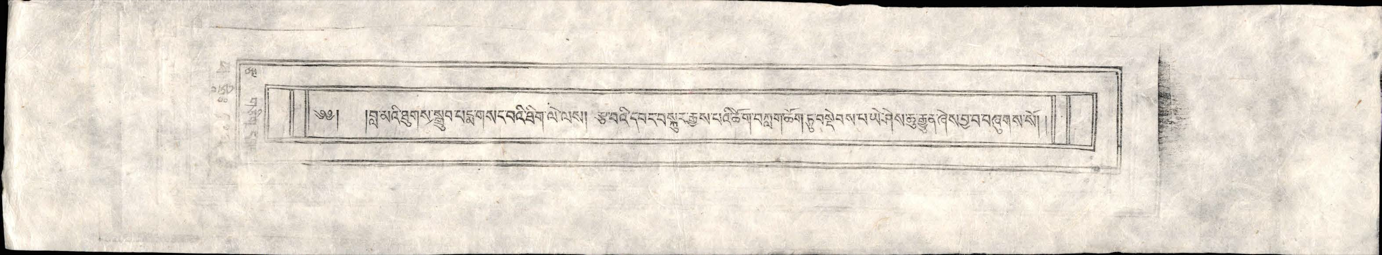 ༄༅། །བླ་མའི་ཐུགས་སྒྲུབ་པདྨ་གསང་བའི་ཐིག་ལེ་ལས། རྩ་བའི་དབང་བསྐུར་རྒྱས་པའི་ཚིག་བཀླག་ཆོག་ཏུ་བསྡེབས་པ་ཡེ་ཤེས་ཆུ་རྒྱུན་ཞེས་བྱ་བ་བཞུགས་སོ། །